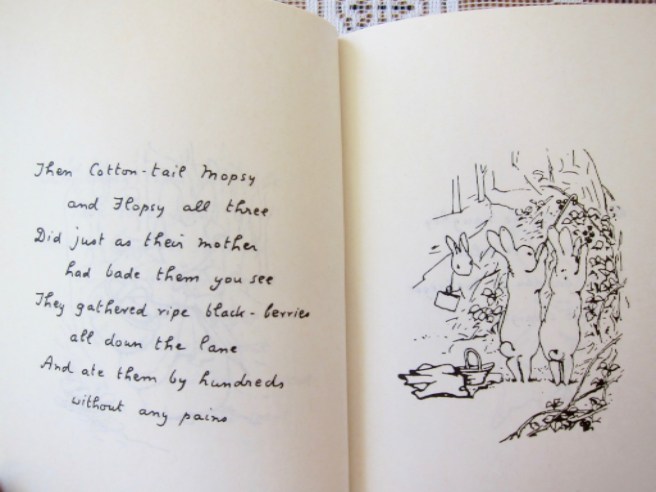 Then Cotton-tail Mopsy
and Flopsy all three
Did just as their mother
had bade them you see
They gathered ripe black-berries
all down the lane
And ate them by hundreds
without any pains